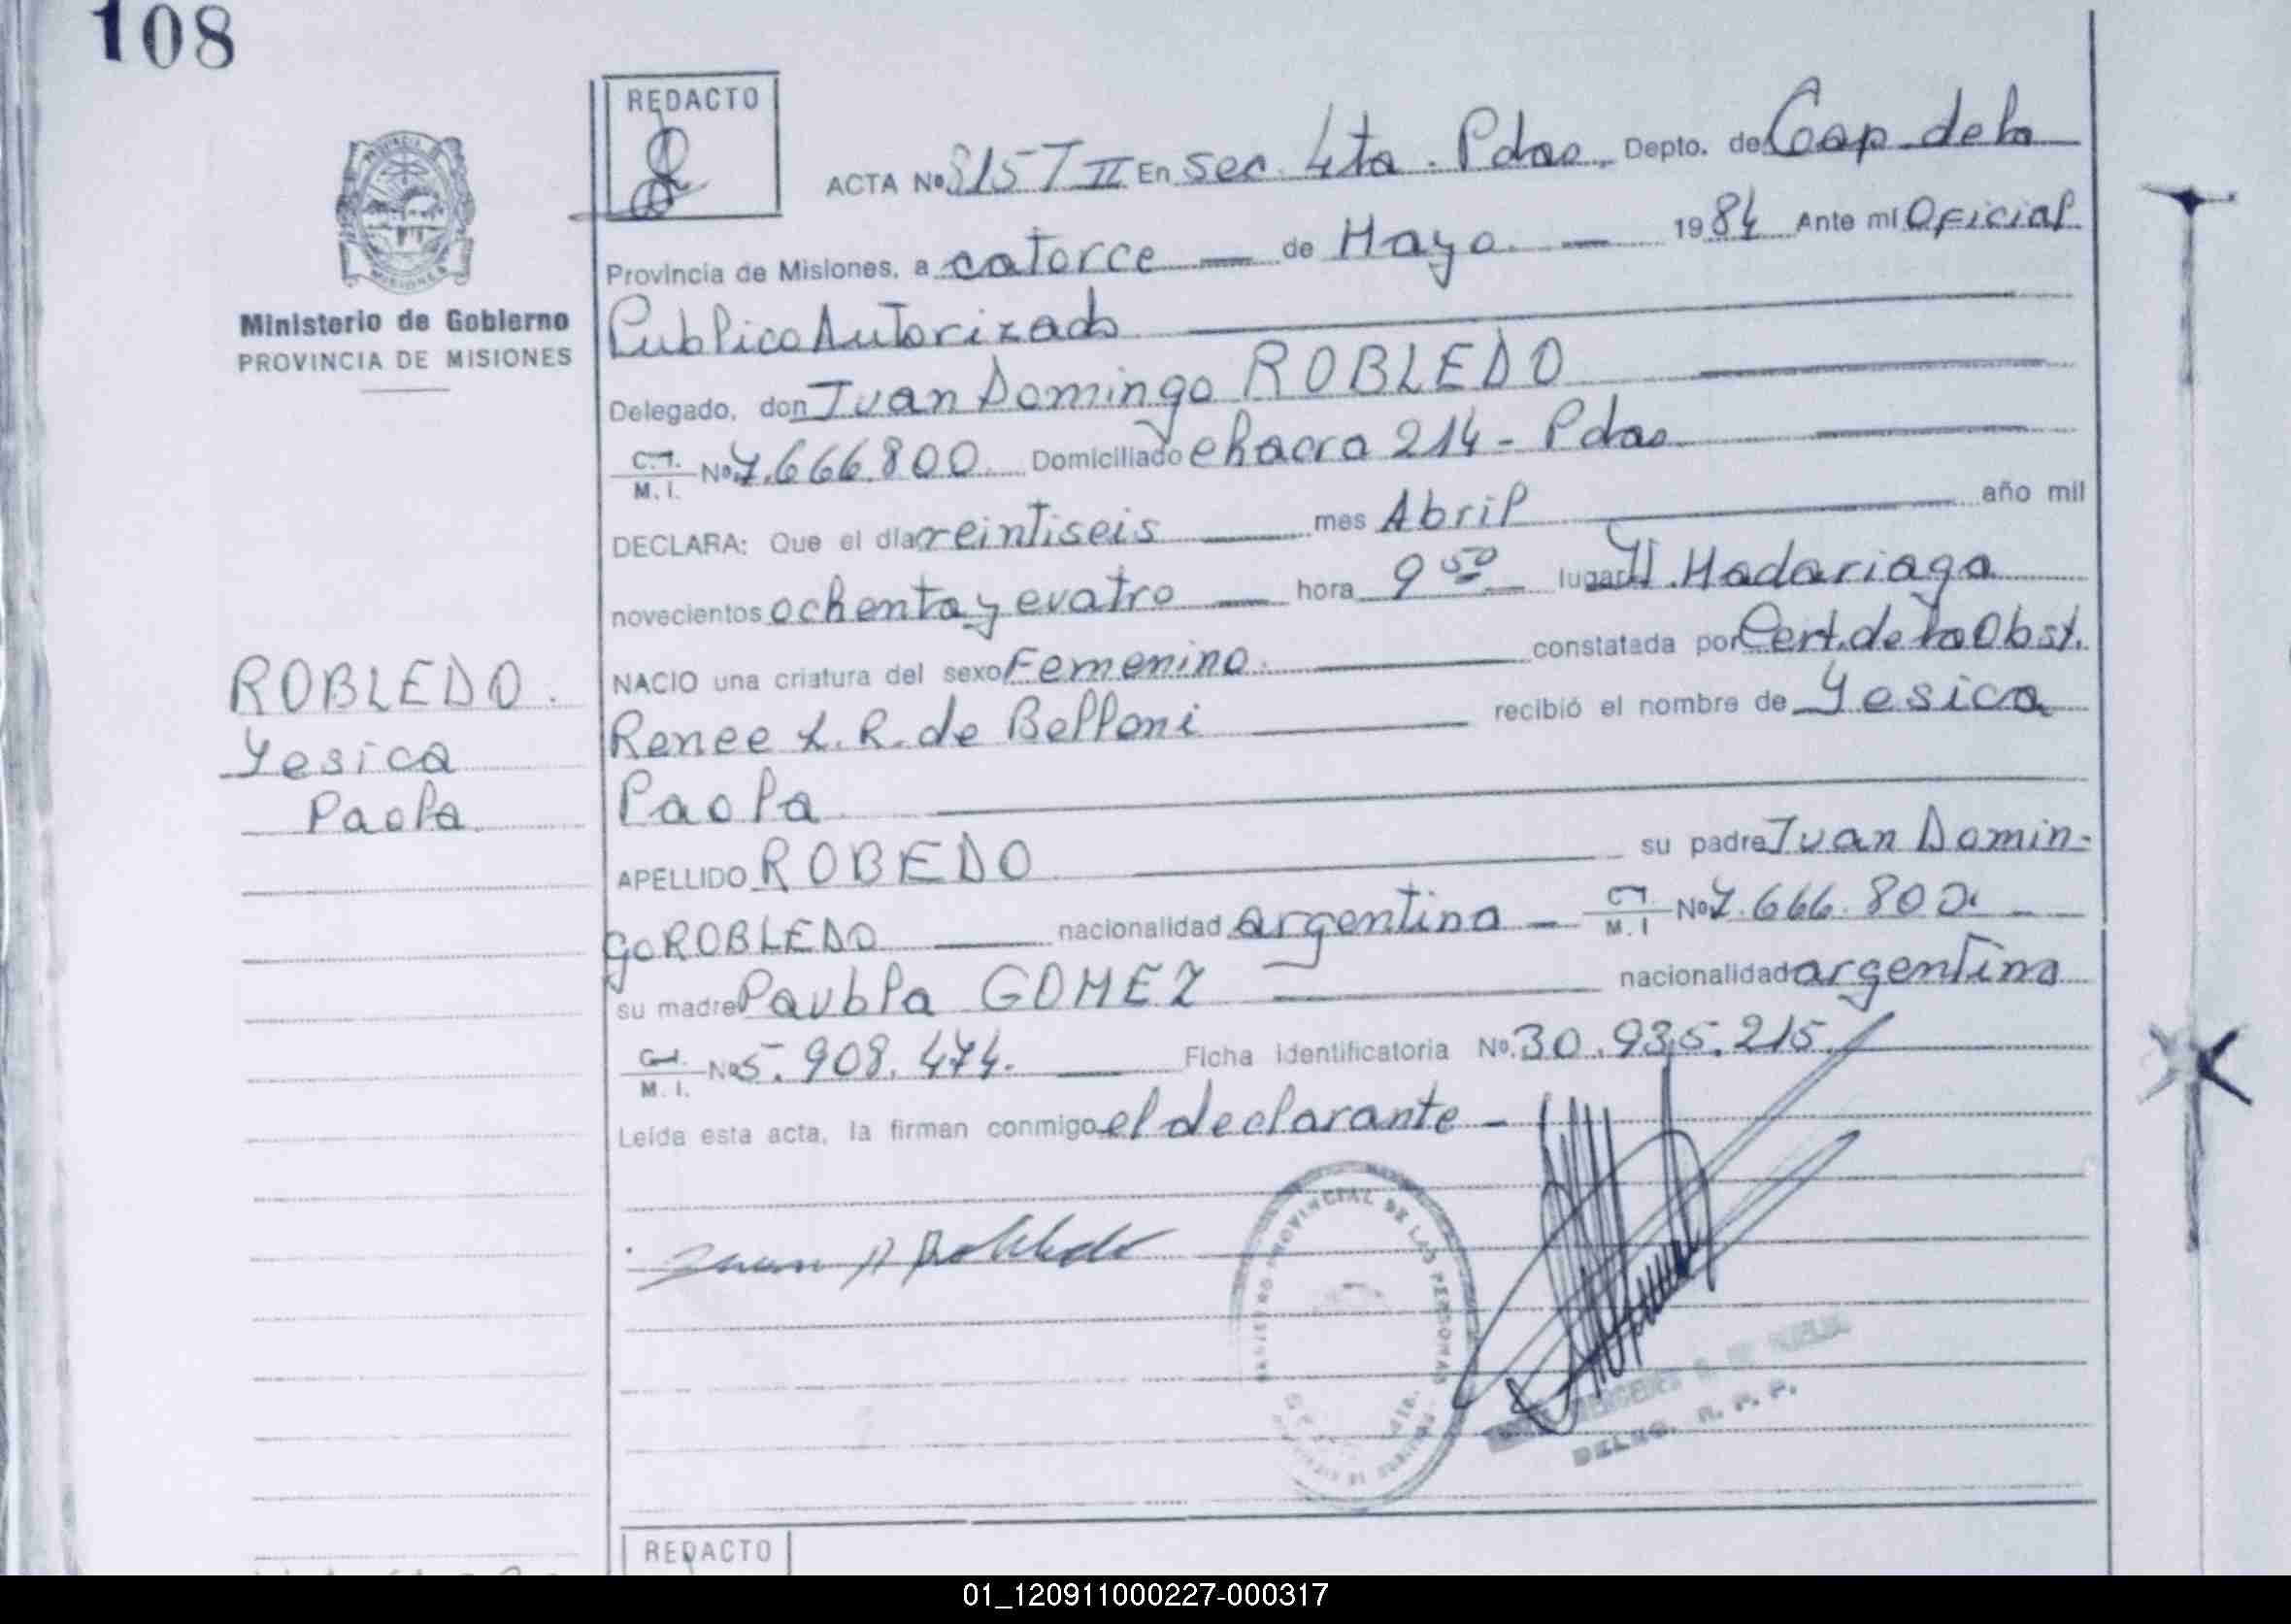 108
REDACTO
ACTA Nº 815 T II En Sec. 4ta. Pdas. Depto. de Cap de la
Provincia de Misiones, a catorce — de Mayo. — 1984 Ante mí Oficial
Publico Autorizado
Ministerio de Gobierno
PROVINCIA DE MISIONES
Delegado, don Juan Domingo ROBLEDO
C.I. M.I. Nº 7.666.800. Domiciliado chacra 214 - Pdas
DECLARA: Que el día veintiseis — mes Abril año mil
novecientos ochenta y cuatro — hora 9 50 — lugar H. Madariaga
NACIO una criatura del sexo Femenino. constatada por Cert. de la Obst.
Renee L. R. de Belloni recibió el nombre de Yesica
Paola
ROBLEDO.
Yesica
Paola
APELLIDO ROBEDO su padre Juan Domin-
go ROBLEDO nacionalidad argentina — C.I. M.I Nº 7.666.800.
su madre Paubla GOMEZ nacionalidad argentina
C.I. M.I. Nº 5.908.474. — Ficha identificatoria Nº 30.935.215
Leída esta acta, la firman conmigo el declarante -
Juan D Robledo
PROVINCIAL DE LAS PERSONAS
DELEG. R. P. P.
REDACTO
01_120911000227-000317